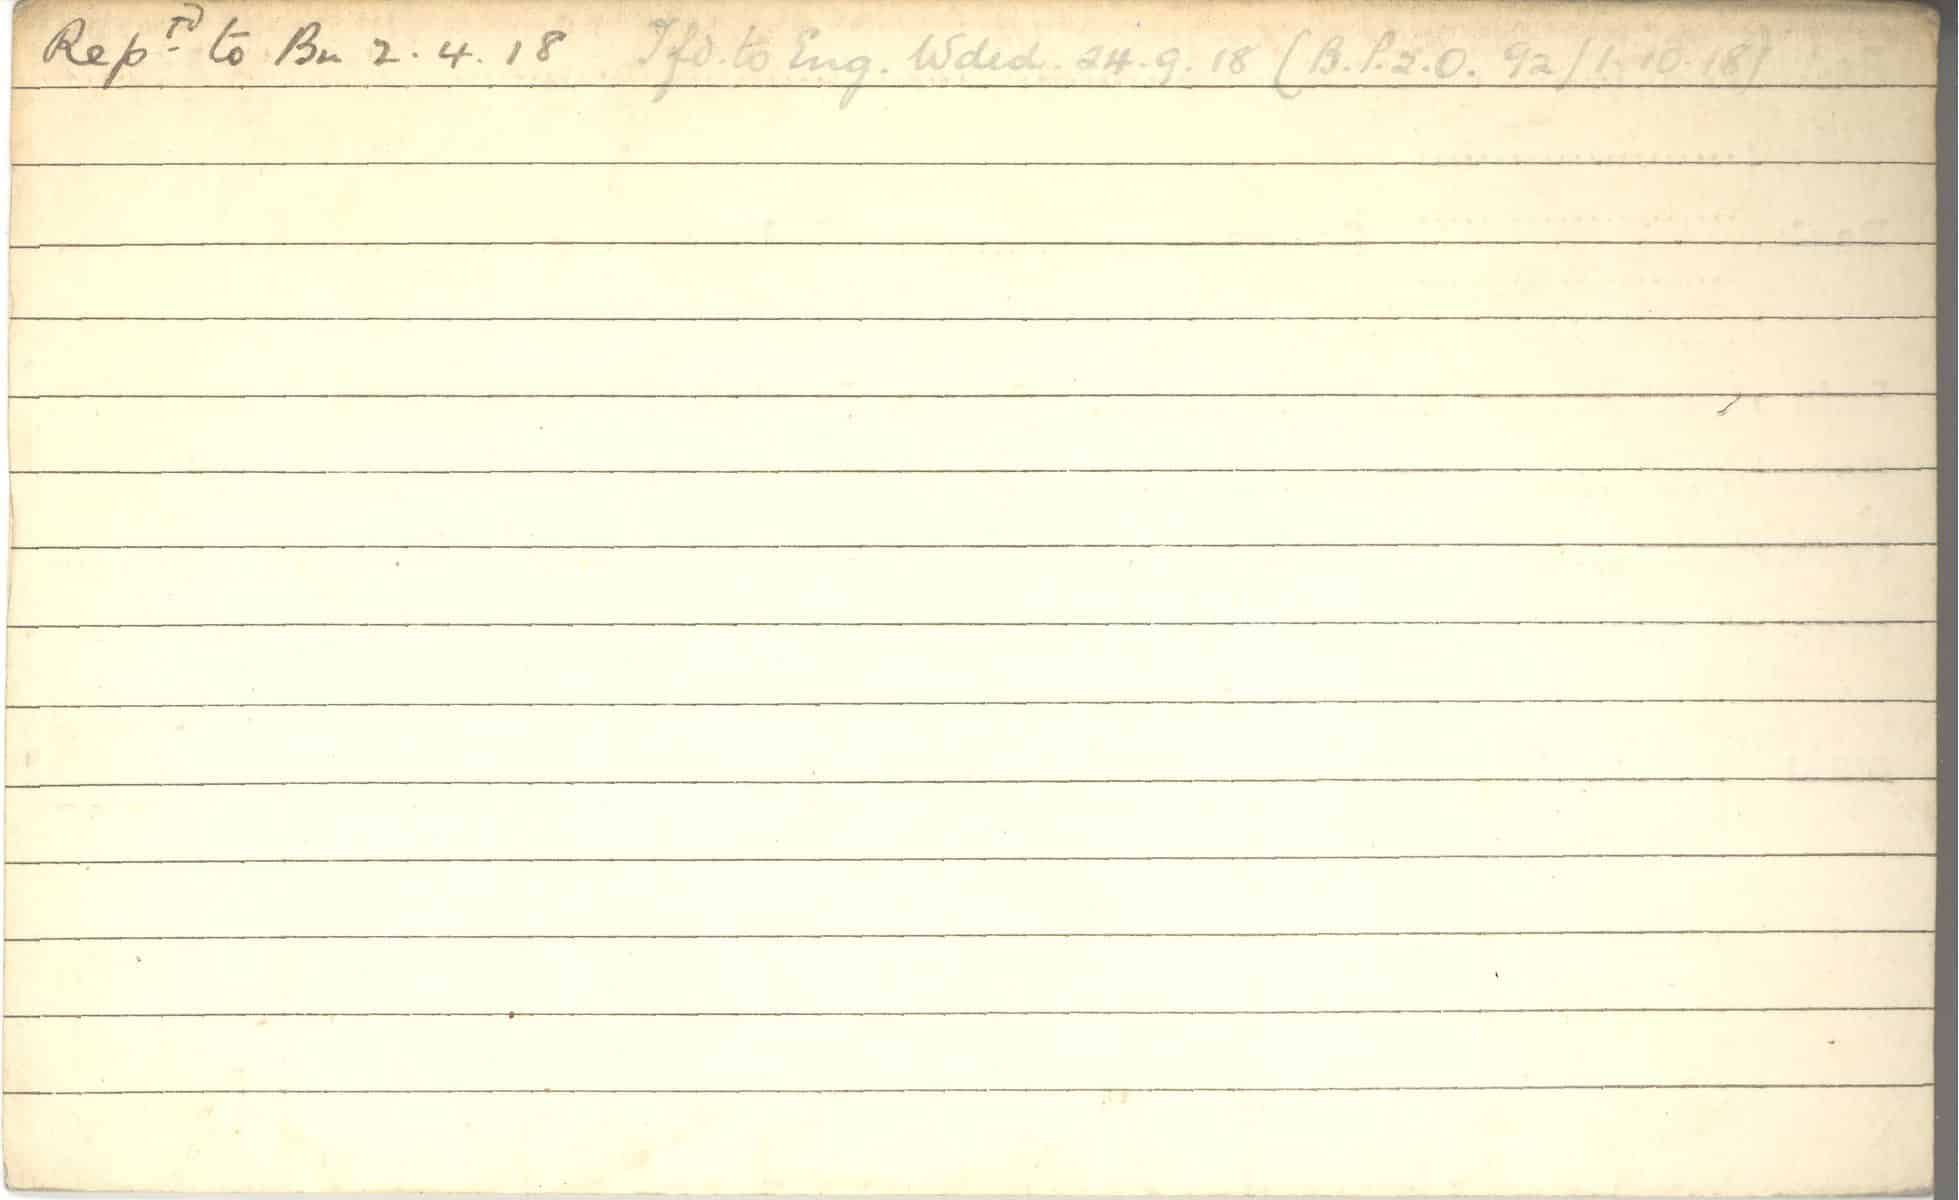 Repᵗᵈ to Bn 2.4.18 Tfd. to Eng. Wded. 24.9.18 (B.P.2.O. 92/1.10.18)